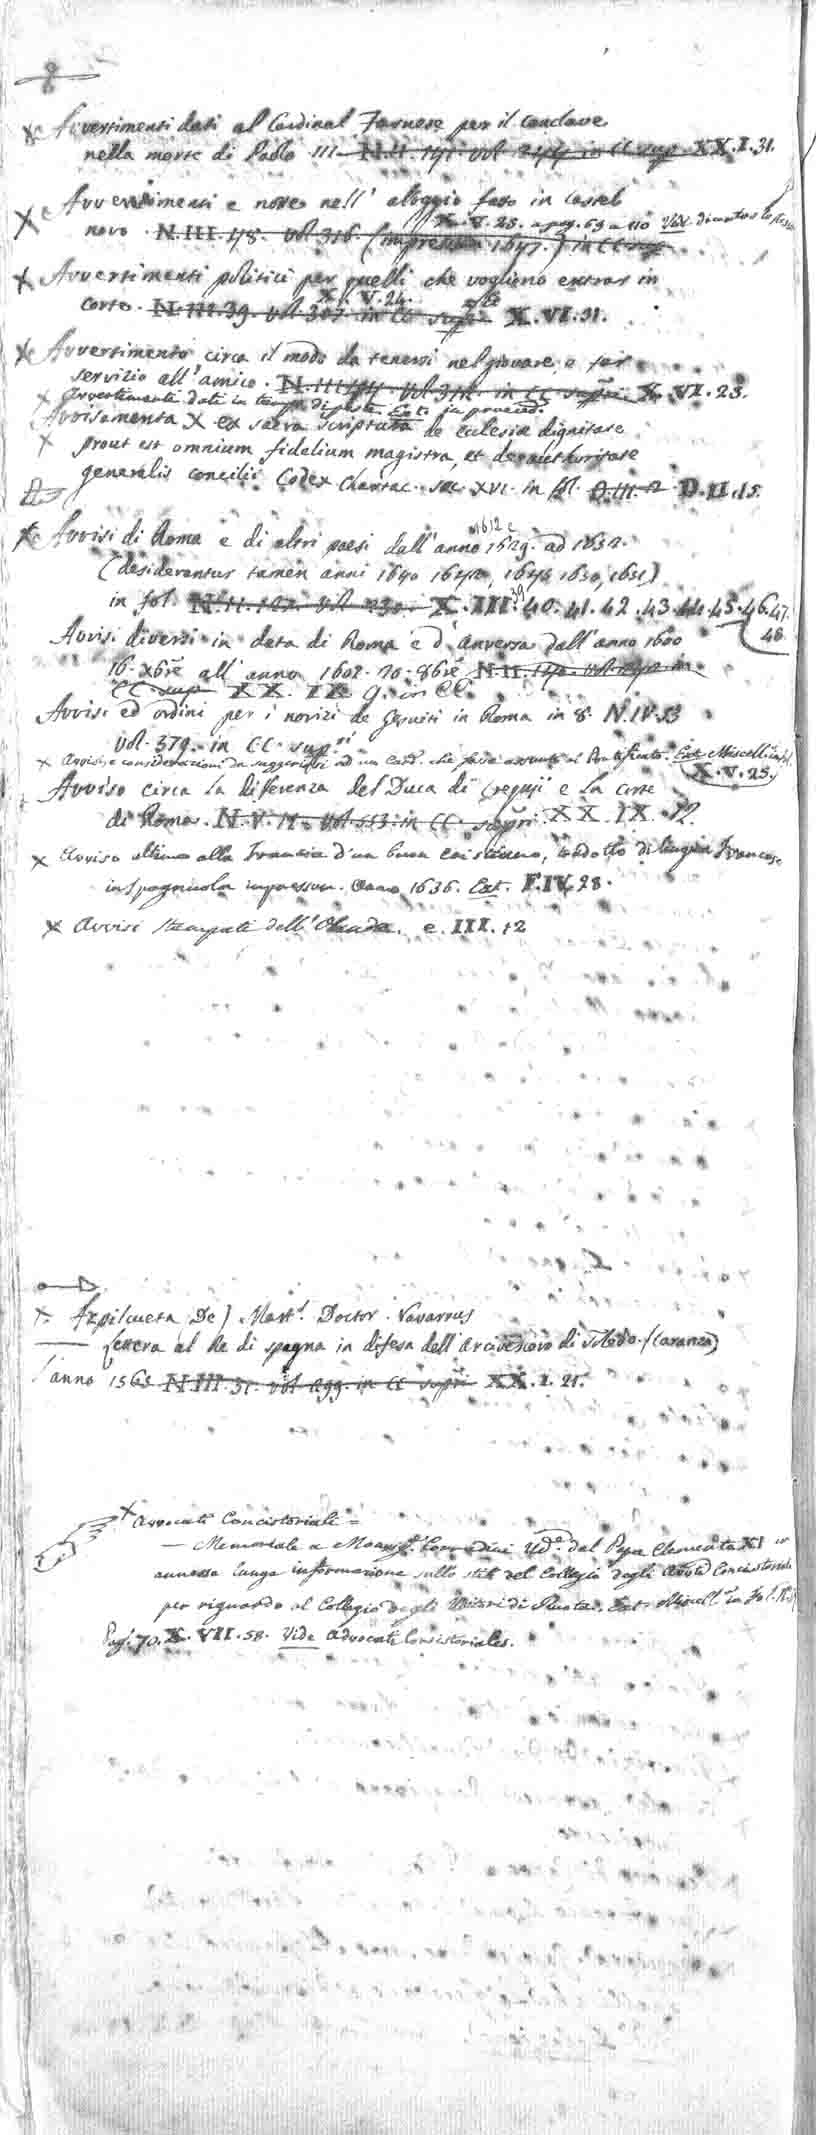 Avvertimenti dati al Cardinal Farnese per il conclave
nella morte di Paolo III N.II. 141. vol 244 in CC sup XX.I.31.
Avvertimenti e note nell' aloggio fato in castel
X.V.25. a pag. 63 a 110 Vid.
novo. N.III.48. vol 316. (impressum 1647.) in CC sup
Avvertimenti politici per quelli che vogliono entrar in
X.V.24.
corte. N.III.39. vol. 307 in CC supri X.VI.31.
Avvertimento circa il modo da tenersi nel giovare, o far
servizio all' amico. N.III.44 vol 312. in CC supri X.VI.23.
Avvertimenti dati in tempo di peste. Ext.
Avvisamenta X ex sacra scriptura de ecclesiæ dignitate
prout est omnium fidelium magistra, et de authoritate
generalis concilii Codex chartac. sæc. XVI. in fol. D.III.2 D.II.15.
1612 e
Avvisi di Roma e di altri paesi dall' anno 1629. ad 1652.
(desiderantur tamen anni 1640 1642, 1645 1650, 1651)
in fol. N.II.127. vol 230. X.III.39.40.41.42.43.44.45.46.47.
48.
Avvisi diversi in data di Roma e d' Anversa dall' anno 1600
16. Xbre all' anno 1602. 20. 8bre N.II.140. vol. 242 in
CC sup XX.IX.9. in CC.
Avvisi ed ordini per i novizi de Gesuiti in Roma in 8. N.IV.53
vol. 379. in CC. supri
Avvisi, e considerazioni da suggerirsi ad un Card. che sarà assunto al Pontificato. Ext. Miscell. in fol.
X.V.25.
Avviso circa la diferenza del Duca di Crequi e la Corte
di Roma. N.V.11. vol. 553. in CC supri XX.IX.12.
Avviso ultimo alla Francia d'un buon cristiano, tradotto di lingua Francese
in Spagnuola impressum. Anno 1636. Ext. F.IV.28.
Avvisi stampati dell' Olanda. e.III.12
Azpilcueta De) Mart. Doctor Navarrus
Lettera al Re di spagna in difesa dell' Arcivescovo di Toledo (Caranza)
l'anno 1565 N.III.31. vol 299. in CC supri XX.I.21.
Avvocati Concistoriali =
— Memoriale a Monsg. Corradini Ud.e del Papa Clemente XI con
annessa lunga informazione sullo stile del Collegio degli Avvti Concistoriali
per riguardo al Collegio degli Uditori di Ruota. Ext. Miscell. in fol.
Pag. 70. X.VII.58. Vide Advocati Consistoriales.